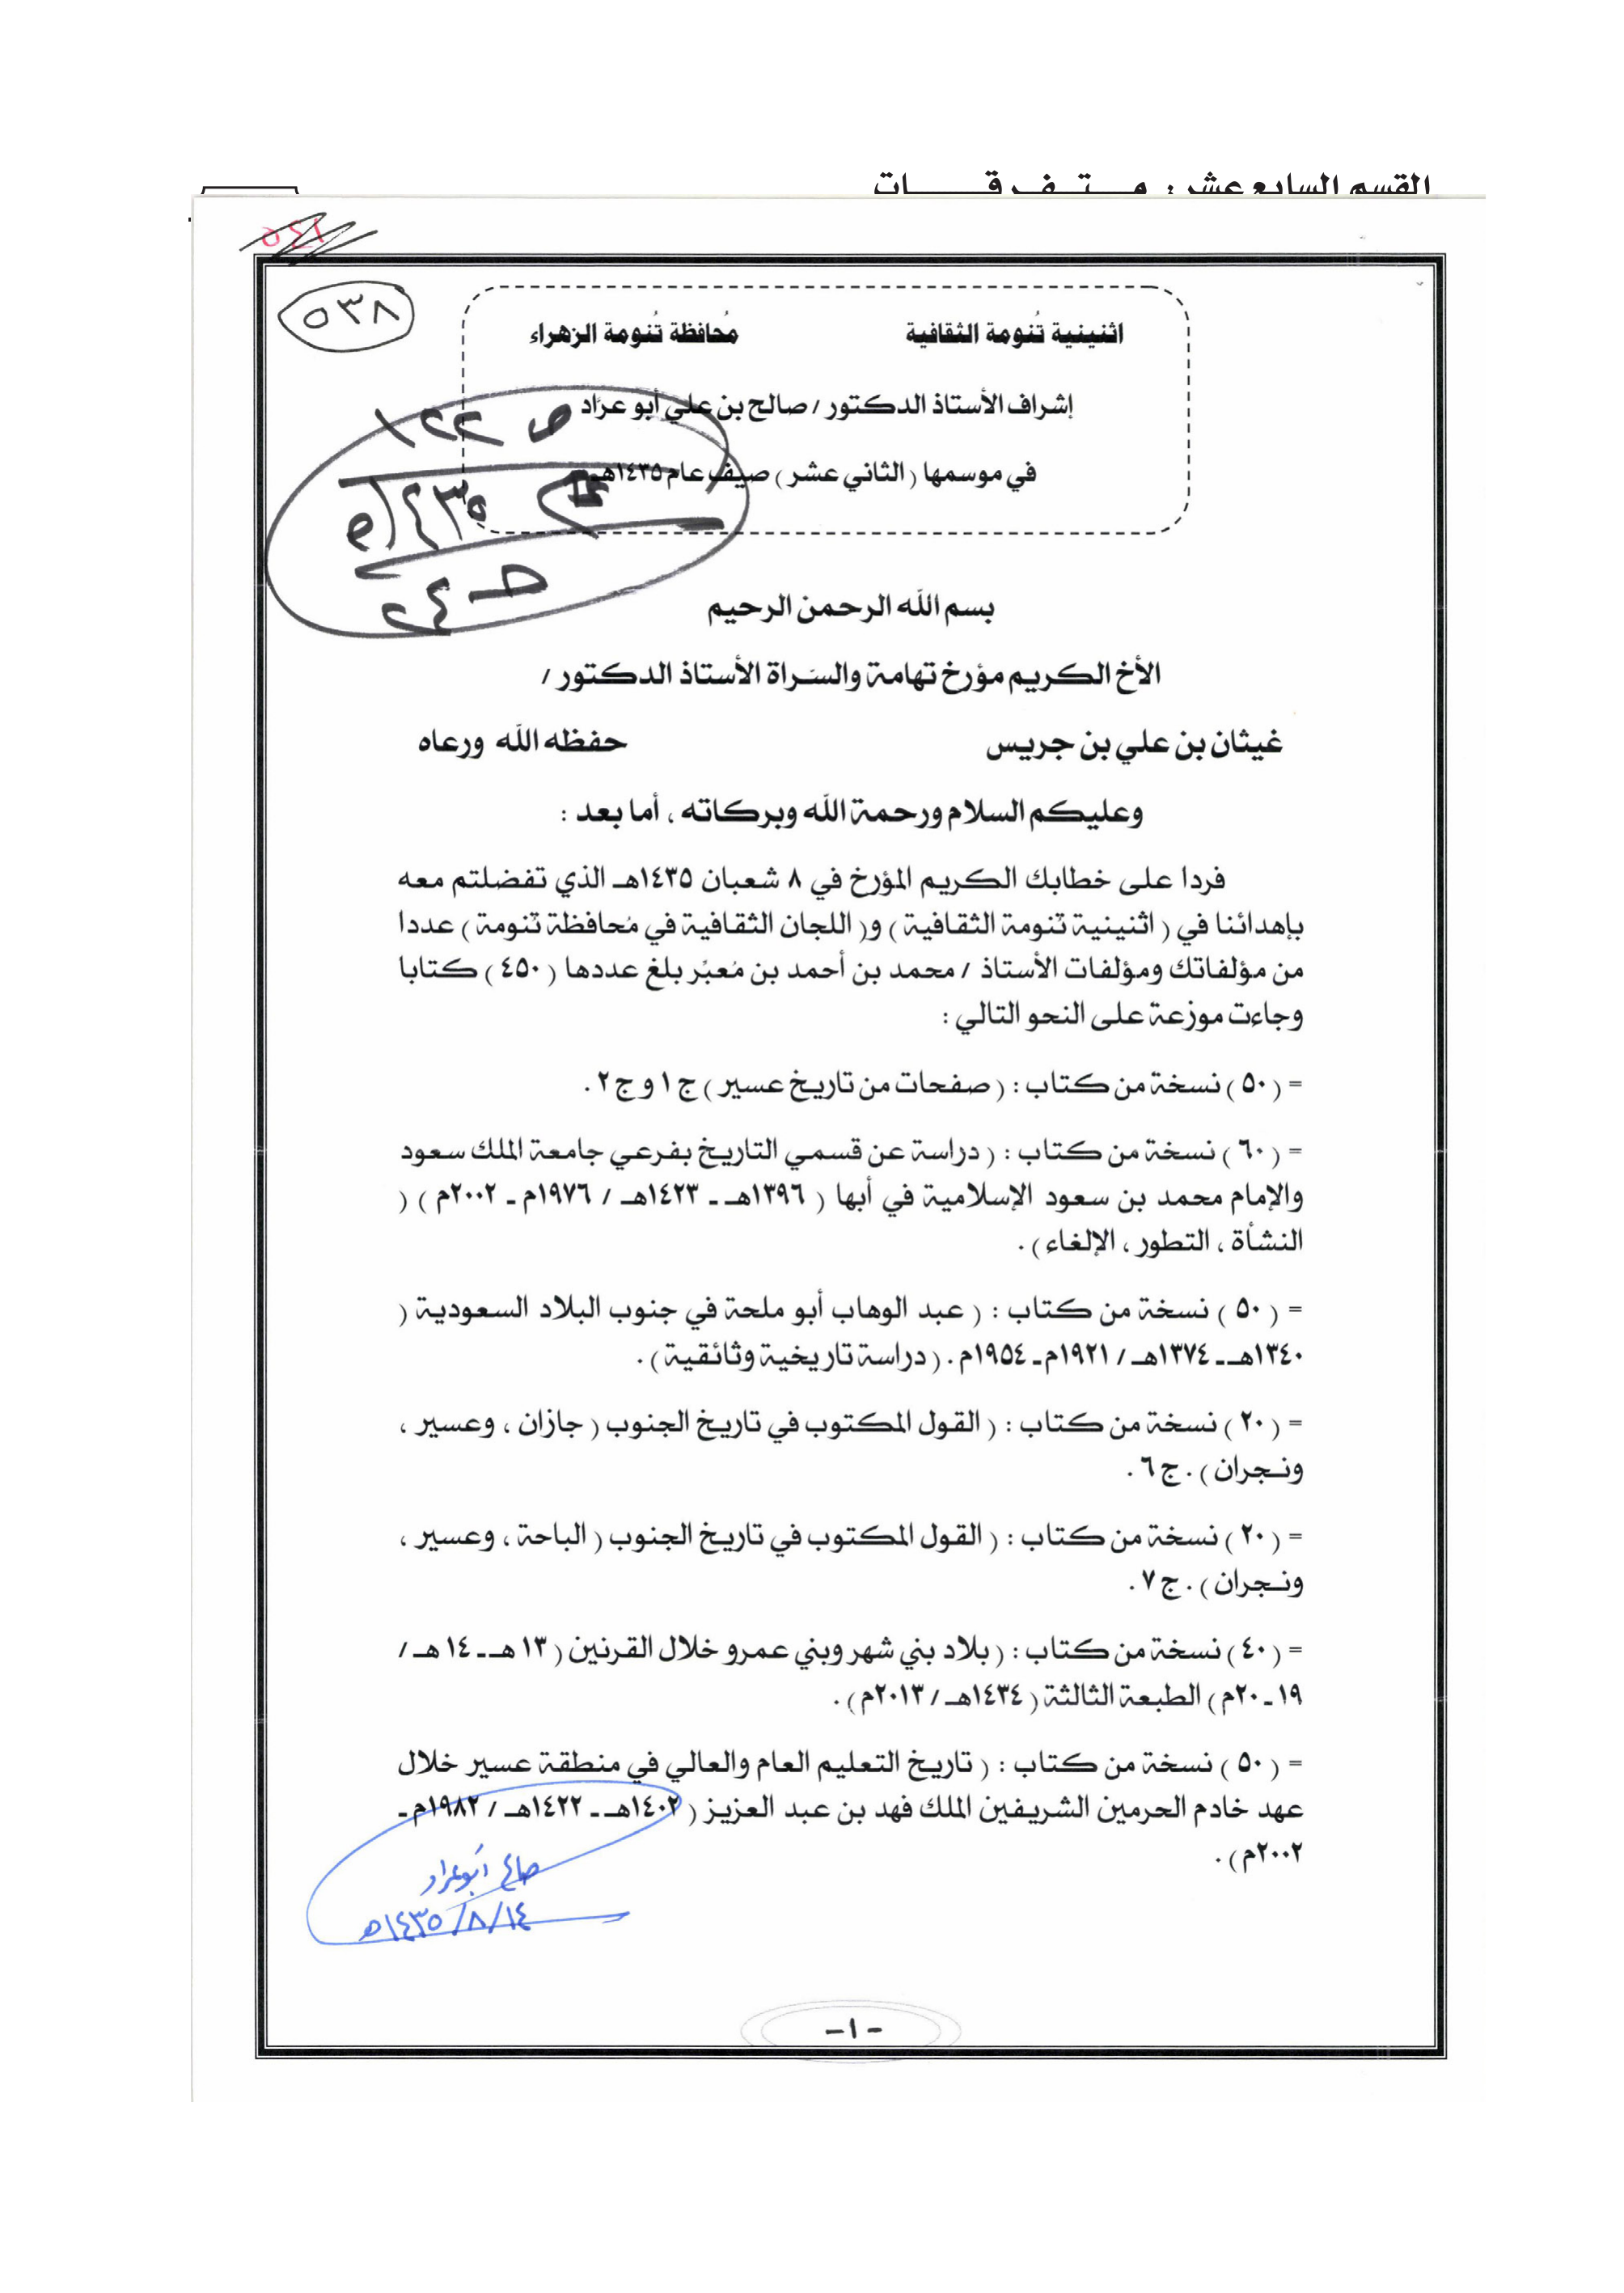 القسم السابع عشر : متفرقات
٥٣٨
اثنينية تُنومة الثقافية مُحافظة تُنومة الزهراء
إشراف الأستاذ الدكتور / صالح بن علي أبو عرّاد
في موسمها ( الثاني عشر ) صيف عام ١٤٣٥هـ
بسم الله الرحمن الرحيم
الأخ الكريم مؤرخ تهامة والسَراة الأستاذ الدكتور /
غيثان بن علي بن جريس حفظه الله ورعاه
وعليكم السلام ورحمة الله وبركاته ، أما بعد :
فردا على خطابك الكريم المؤرخ في ٨ شعبان ١٤٣٥هـ الذي تفضلتم معه
بإهدائنا في ( اثنينية تنومة الثقافية ) و( اللجان الثقافية في مُحافظة تنومة ) عددا
من مؤلفاتك ومؤلفات الأستاذ / محمد بن أحمد بن مُعبّر بلغ عددها ( ٤٥٠ ) كتابا
وجاءت موزعة على النحو التالي :
= ( ٥٠ ) نسخة من كتاب : ( صفحات من تاريخ عسير ) ج ١ و ج ٢ .
= ( ٦٠ ) نسخة من كتاب : ( دراسة عن قسمي التاريخ بفرعي جامعة الملك سعود
والإمام محمد بن سعود الإسلامية في أبها ( ١٣٩٦هـ ـ ١٤٢٣هـ / ١٩٧٦م ـ ٢٠٠٢م ) (
النشأة ، التطور ، الإلغاء ) .
= ( ٥٠ ) نسخة من كتاب : ( عبد الوهاب أبو ملحة في جنوب البلاد السعودية (
١٣٤٠هـ ـ ١٣٧٤هـ / ١٩٢١م ـ ١٩٥٤م . ( دراسة تاريخية وثائقية ) .
= ( ٢٠ ) نسخة من كتاب : ( القول المكتوب في تاريخ الجنوب ( جازان ، وعسير ،
ونجران ) . ج ٦ .
= ( ٢٠ ) نسخة من كتاب : ( القول المكتوب في تاريخ الجنوب ( الباحة ، وعسير ،
ونجران ) . ج ٧ .
= ( ٤٠ ) نسخة من كتاب : ( بلاد بني شهر وبني عمرو خلال القرنين ( ١٣ هـ ـ ١٤ هـ /
١٩ ـ ٢٠م ) الطبعة الثالثة ( ١٤٣٤هـ / ٢٠١٣م ) .
= ( ٥٠ ) نسخة من كتاب : ( تاريخ التعليم العام والعالي في منطقة عسير خلال
عهد خادم الحرمين الشريفين الملك فهد بن عبد العزيز ( ١٤٠٢هـ ـ ١٤٢٢هـ / ١٩٨٢م ـ
٢٠٠٢م ) .
صالح أبو عراد
١٤٣٥/٨/١٤هـ
-١-